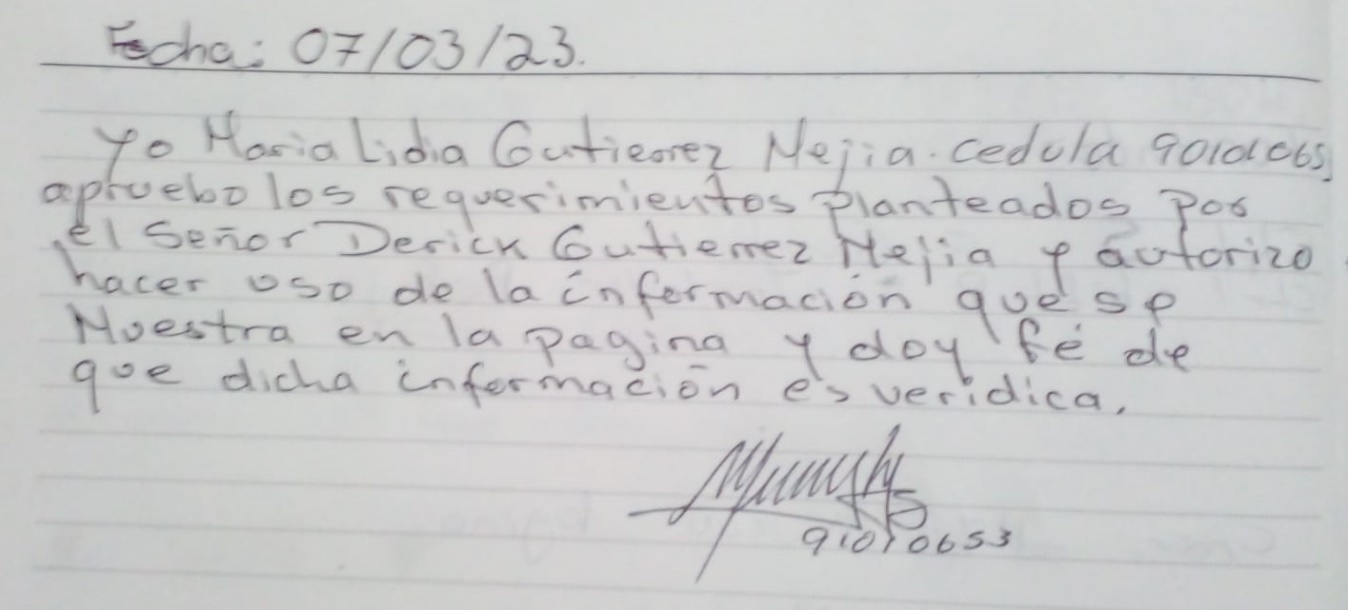 Fecha: 07/03/23.
Yo Maria Lidia Gutierrez Mejia. cedula
apruebo los requerimientos planteados por
el Señor Derick Gutierrez Mejia y autorizo
hacer uso de la información que se
Muestra en la pagina y doy fé de
que dicha información es veridica.